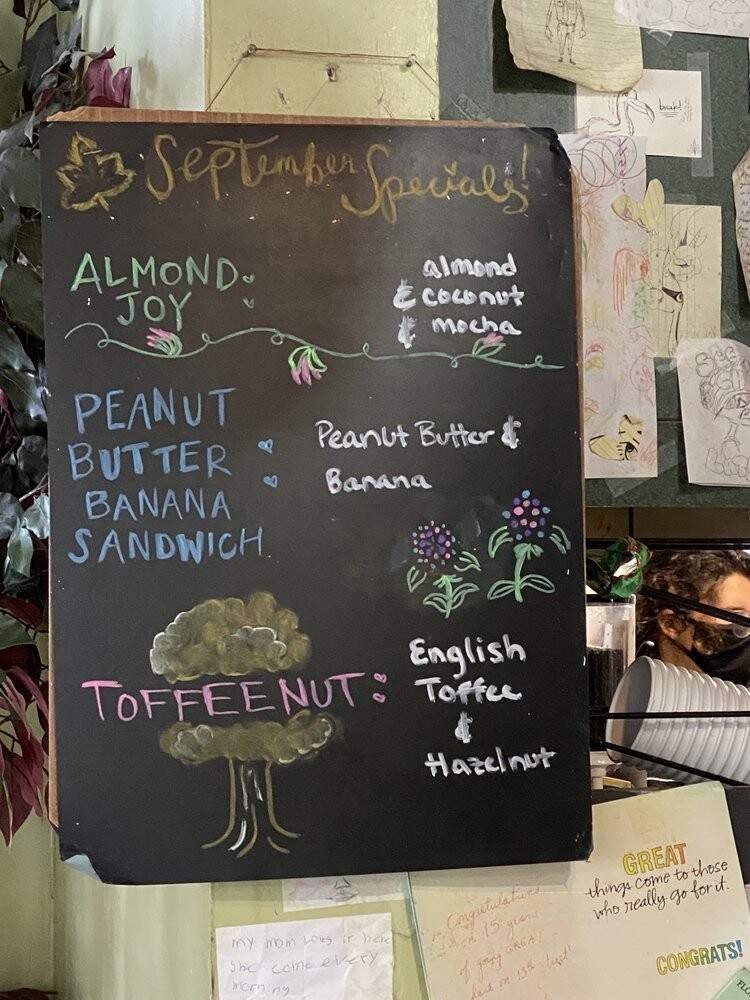 September Specials!
ALMOND
JOY :
almond
& coconut
& mocha
PEANUT
BUTTER :
BANANA
SANDWICH
Peanut Butter &
Banana
TOFFEENUT :
English
Toffee
&
Hazelnut
GREAT
things come to those
who really go for it.
CONGRATS!
Congratulations
on 15 years
my mom lovs it here
She come every
morning